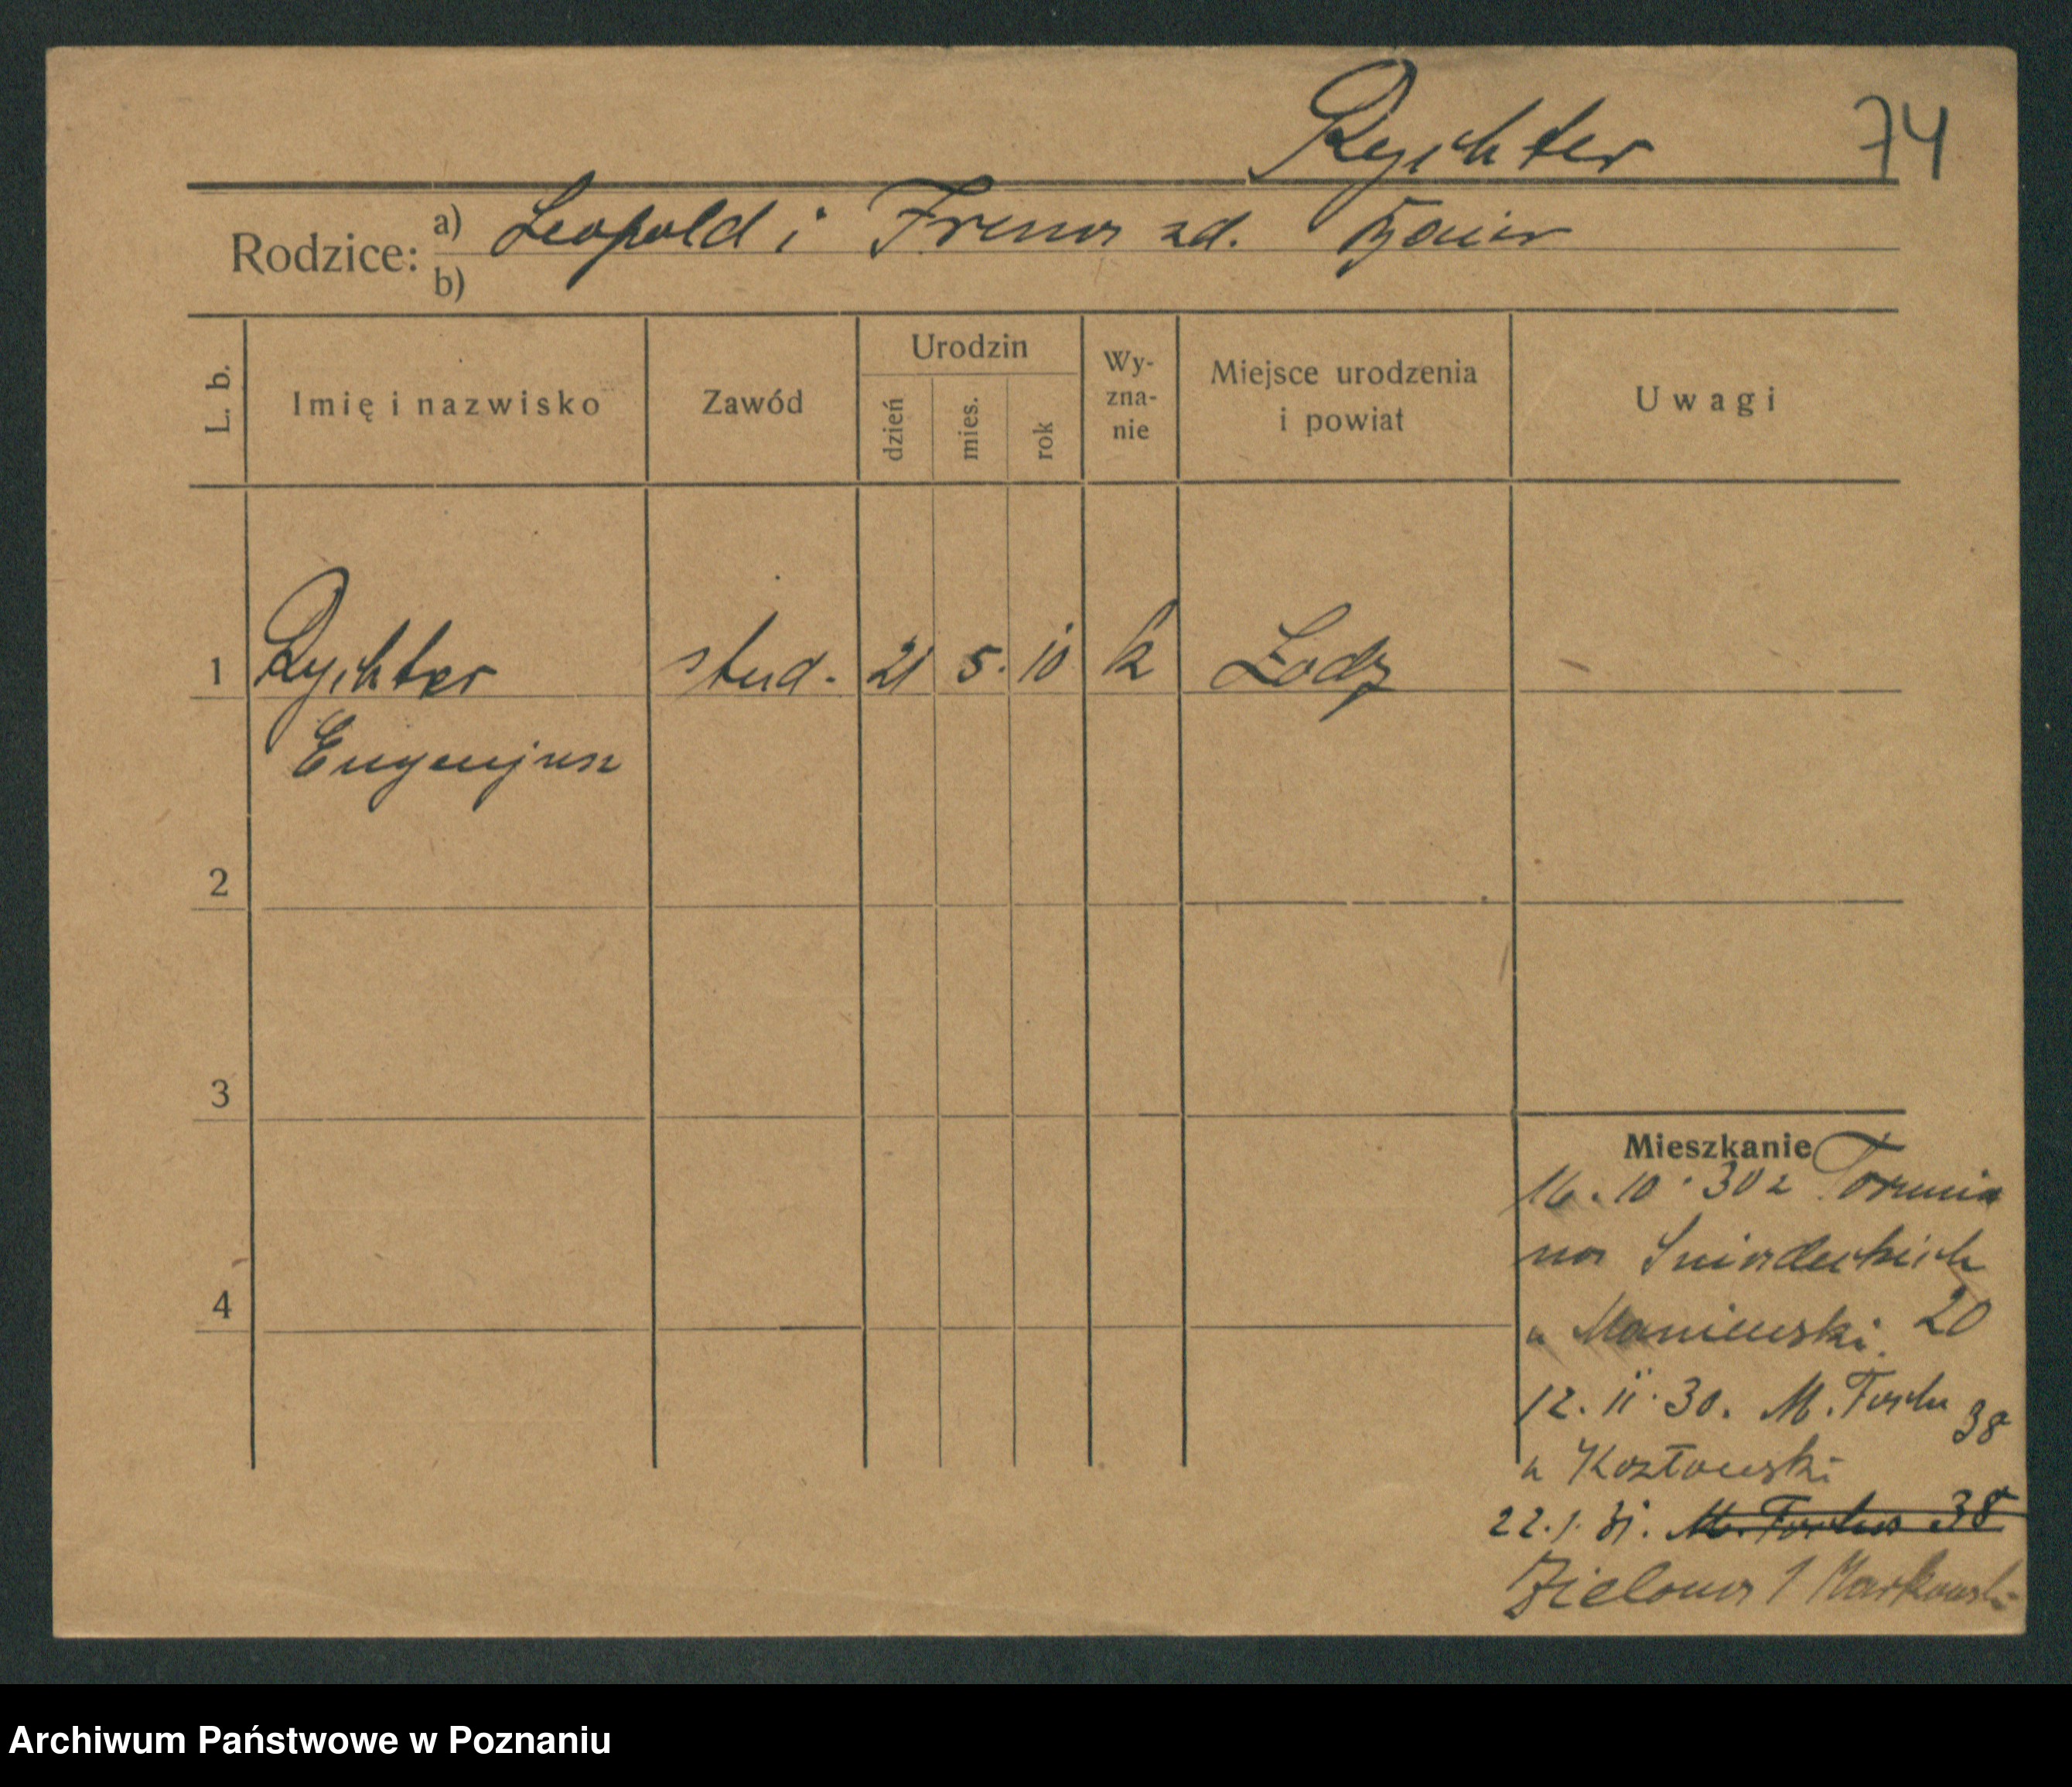 Rychter 74
Rodzice: a) Leopold i Irena zd.
b)
L. b. Imię i nazwisko Zawód Urodzin dzień mies. rok Wy-zna-nie Miejsce urodzenia i powiat Uwagi
1 Rychter stud. 21 5. 10 k Łodz
Eugenjusz
2
3
Mieszkanie
16.10.30 z Torunia
na Sniadeckich
4
u Maniewski. 20
12.11.30. M. Focha 38
u Kozłowski
22.1.31. M. Focha 38
Zielona 1 Markowski
Archiwum Państwowe w Poznaniu